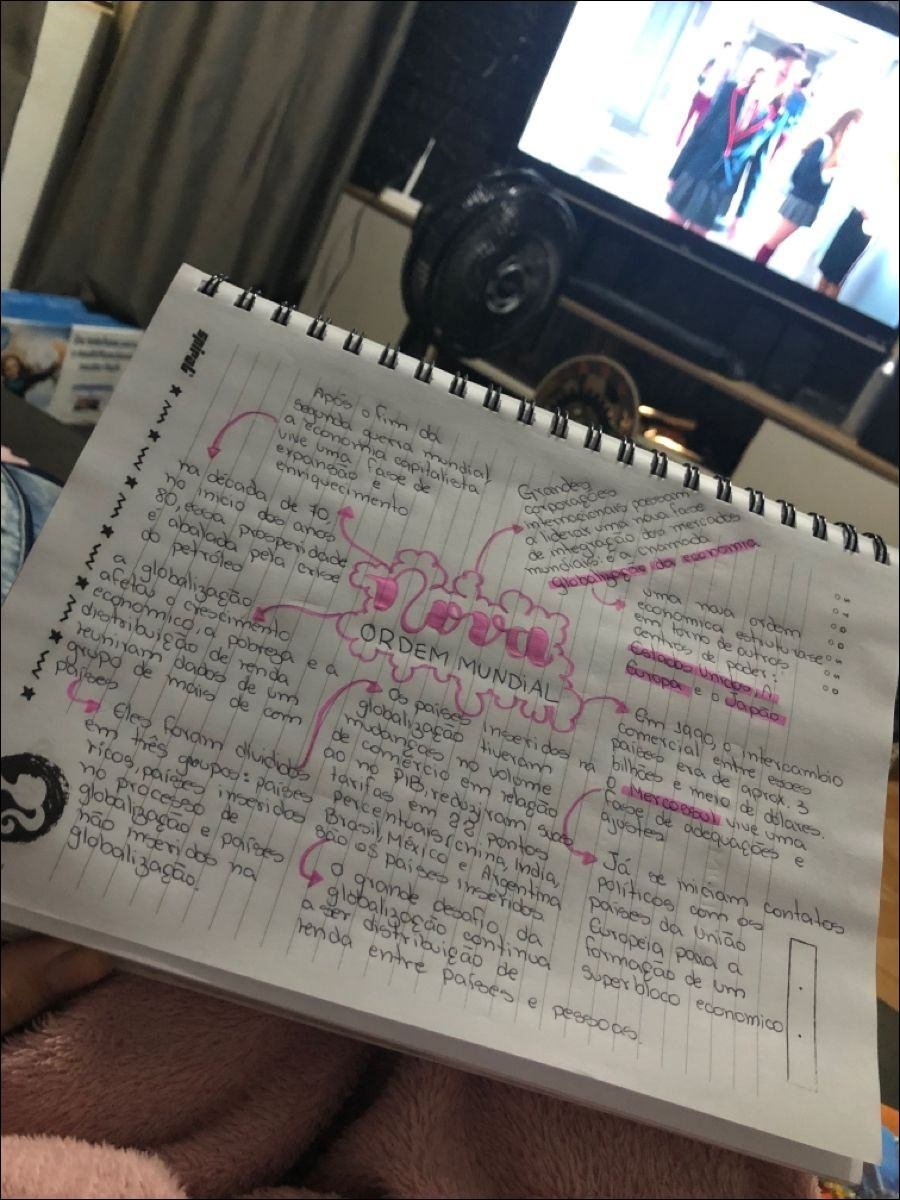 spiral
Após o fim da
segunda guerra mundial,
a economia capitalista
vive uma fase de
expansão e
enriquecimento
na década de 70,
no inicio dos anos
80, essa prosperidade
é abalada pela crise
do petróleo
a globalização
afetou o crescimento
econômico, a pobreza e a
distribuição de renda
reuniram dados de um
grupo de mais de cem
países
Eles foram divididos
em três grupos: países
ricos, países inseridos
no processo de
globalização e países
não inseridos na
globalização.
ORDEM MUNDIAL
Os países inseridos na
globalização tiveram
mudanças no volume
de comércio em relação
ao no PIB, reduziram suas
tarifas em 22 pontos
percentuais, (china, India,
Brasil, México e Argentina
são os países inseridos
O grande desafio da
globalização continua
a ser distribuição de
renda entre países e pessoas.
Grandes
corporações
internacionais passam
a liderar uma nova fase
de integração dos mercados
mundiais: é a chamada
globalização da economia
uma nova ordem
economica estrutura-se
em torno de outros
centros de poder:
Estados Unidos, A
Europa e o Japão
Em 1990, o intercambio
comercial entre esses
países era de aprox. 3
bilhões e meio de dólares.
o Mercossul vive uma
fase de adequações e
ajustes
Já se iniciam contatos
políticos com os
países da união
Europeia para a
formação de um
superbloco economico